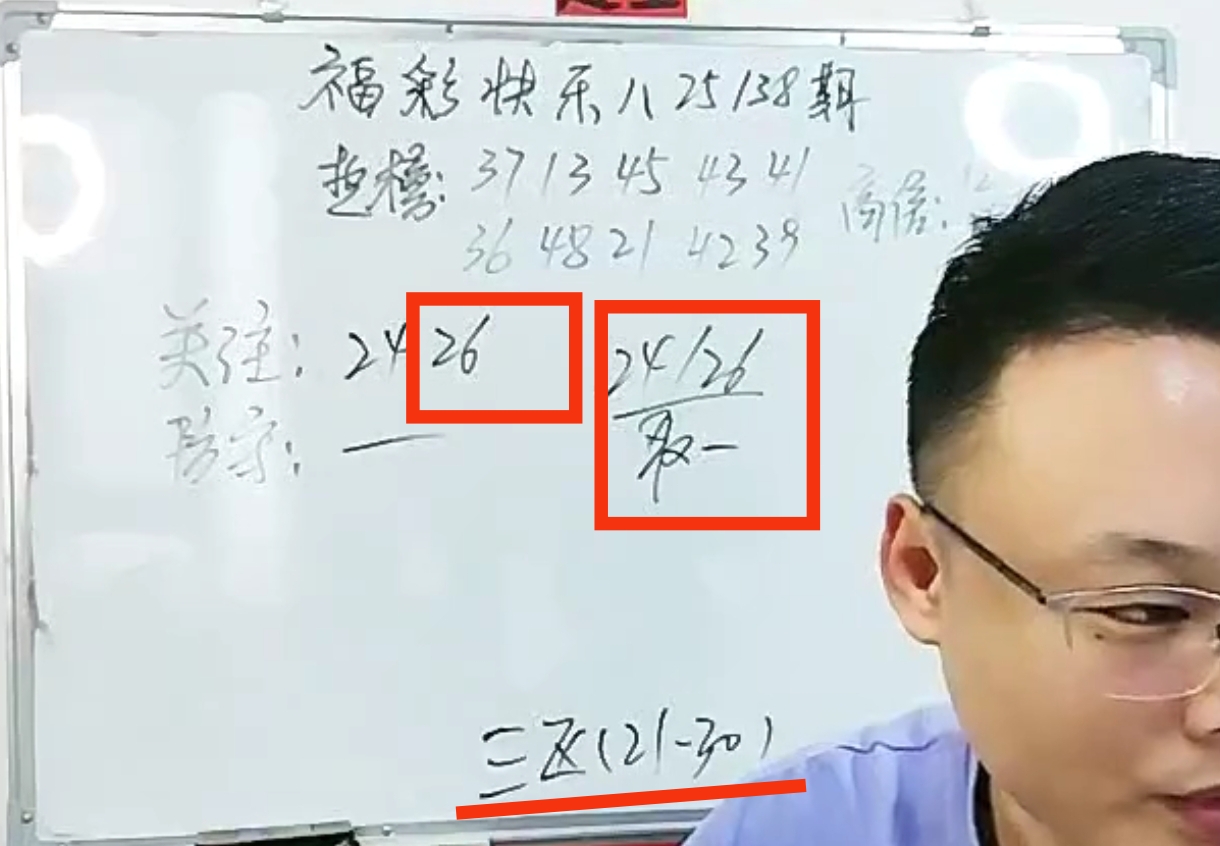 福彩快乐八25138期
37 13 45 43 41
高倍:
36 48 21 42 39
关注: 24 26
24/26
取一
防守: 一
三区(21-30)